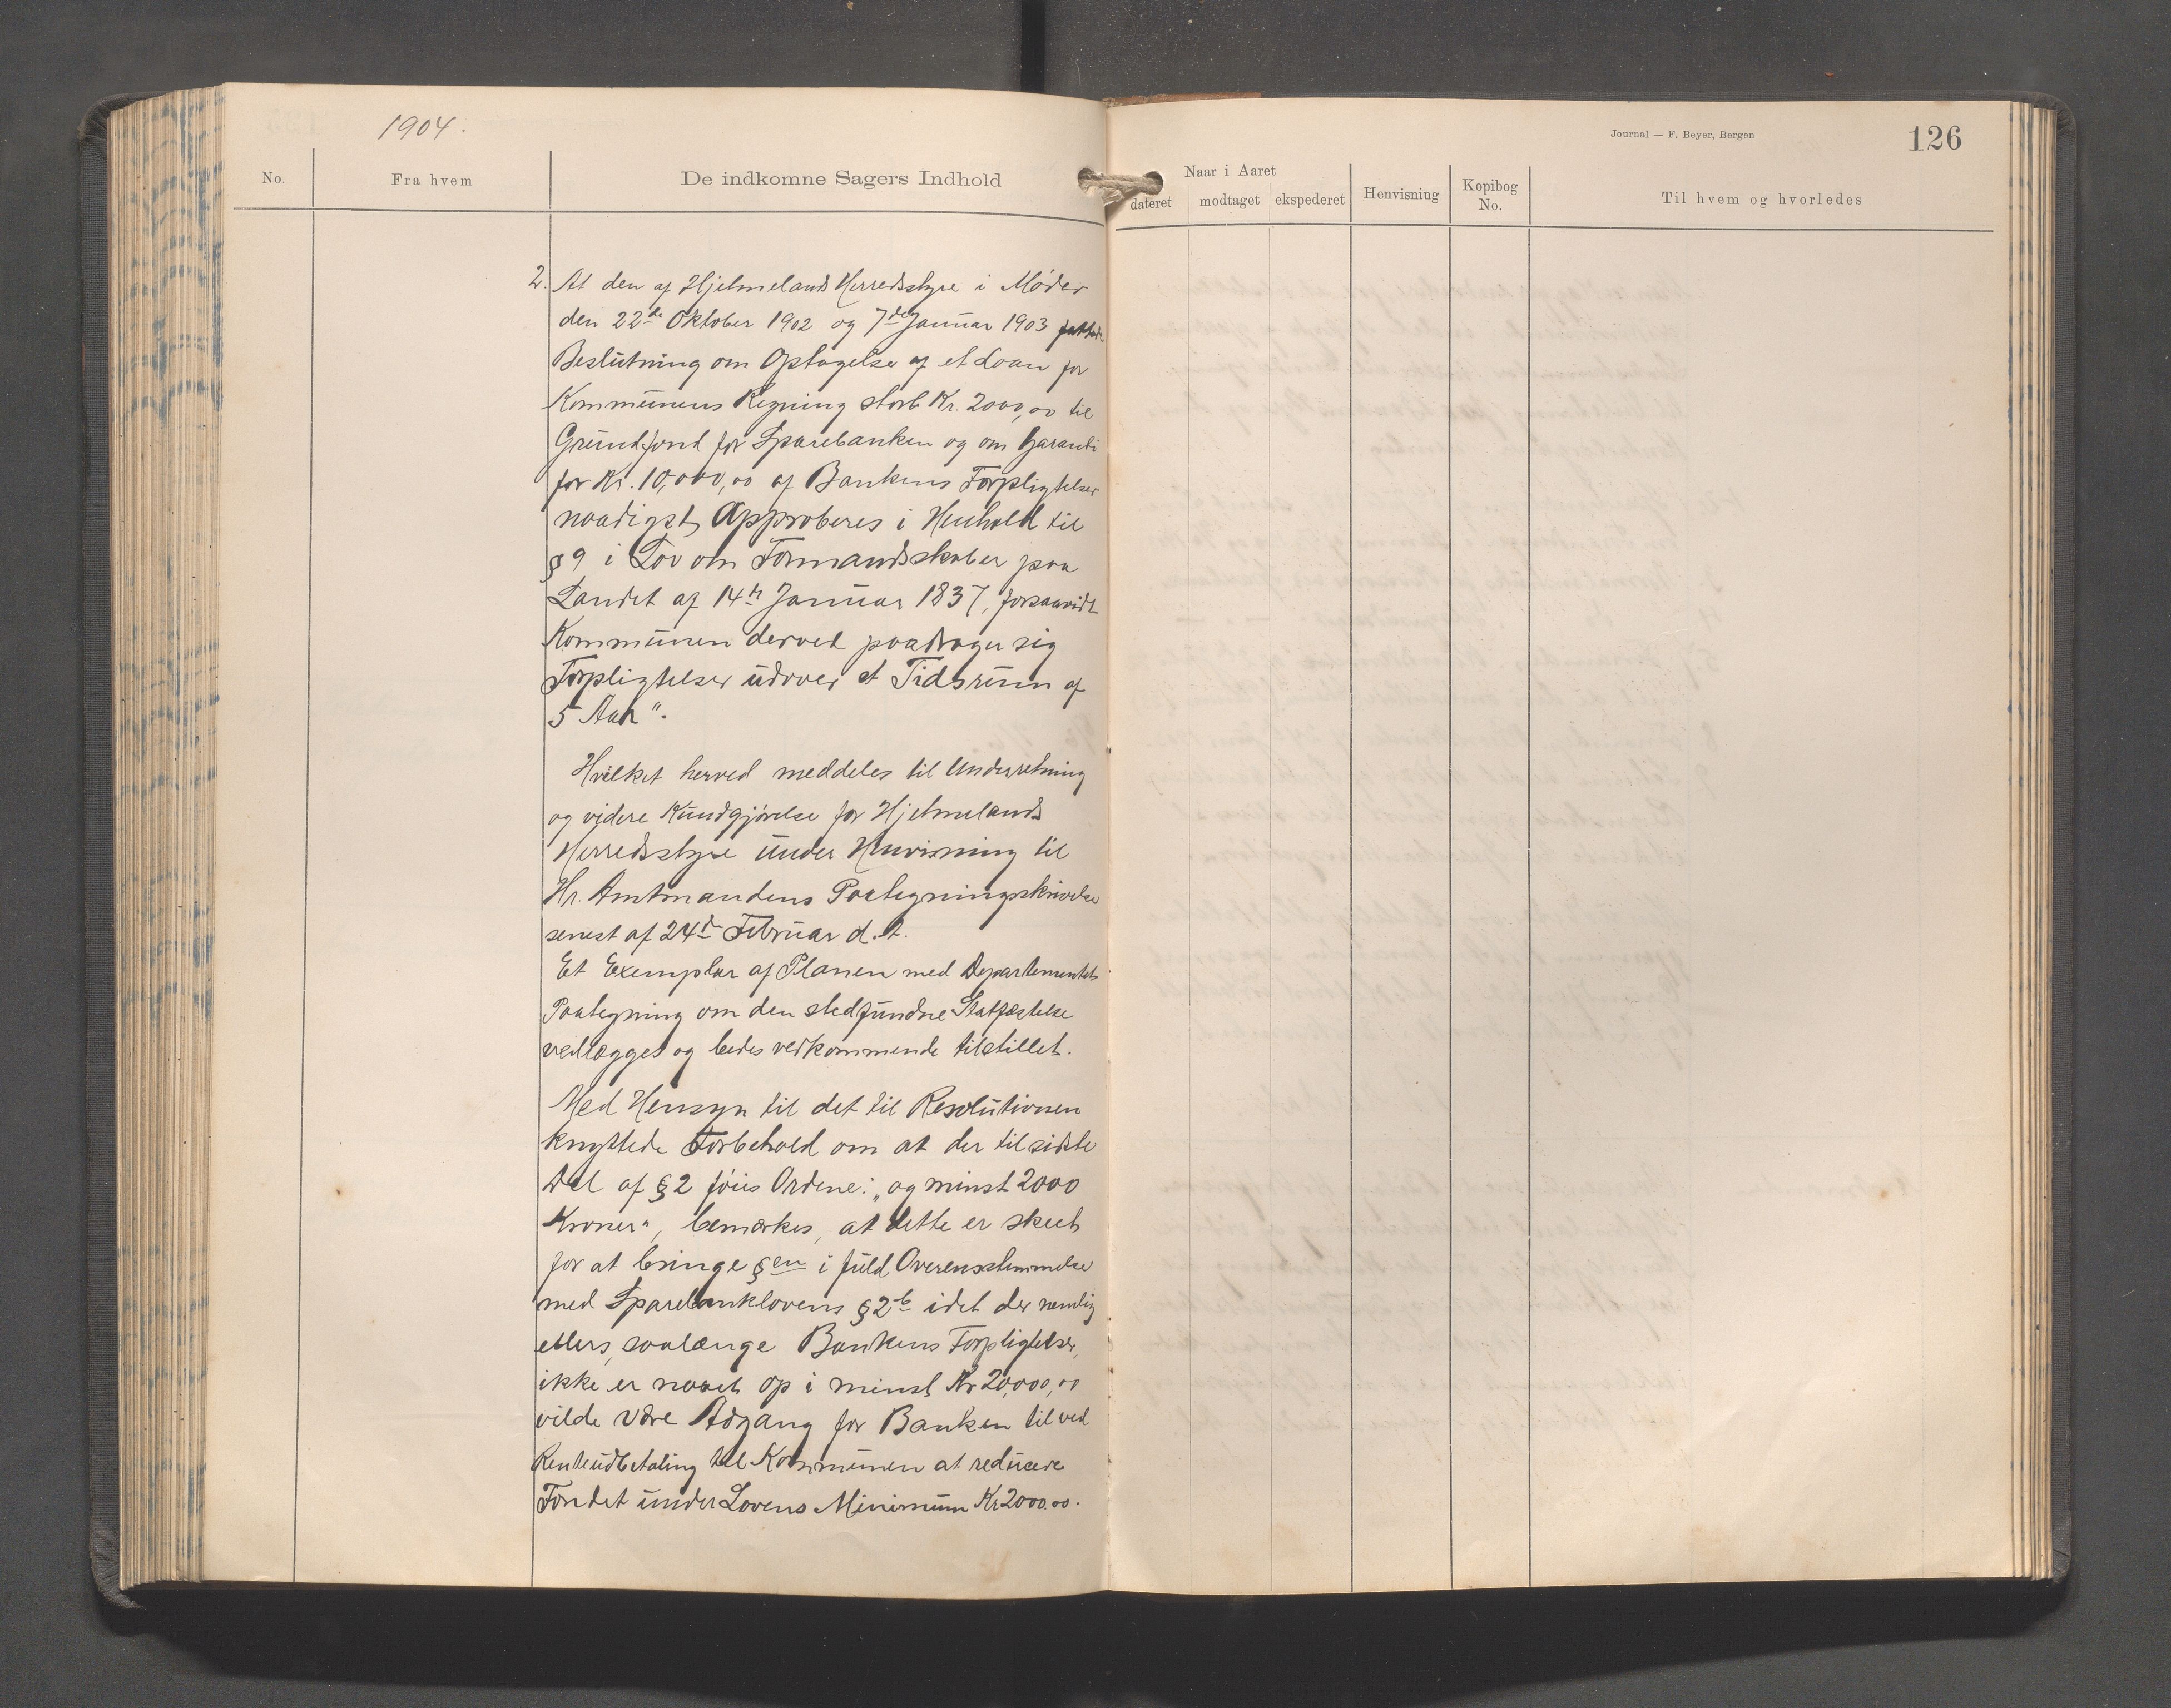 1904.
No.
Fra hvem
De indkomne Sagers Indhold
2. At den af Hjelmelands Herredsstyre i Møder
den 22de Oktober 1902 og 7de Januar 1903 fattede
Beslutning om Optagelse af et Laan for
Kommunens Regning stort Kr. 2000,00 til
Grundfond for Sparebanken og om Garanti
for Kr. 10,000,00 af Bankens Forpligtelser
naadigst Approberes i Henhold til
§ 9 i Lov om Formandsskaber paa
Landet af 14de Januar 1837, forsaavidt
Kommunen derved paadrager sig
Forpligtelser udover et Tidsrum af
5 Aar".
Hvilket herved meddeles til Underretning
og videre Kundgjørelse for Hjelmelands
Herredsstyre under Henvisning til
Hr. Amtmandens Paategningsskrivelse
senest af 24de Februar d. A.
Et Exemplar af Planen med Departementets
Paategning om den stedfundne Statfæstelse
vedlægges og bedes vedkommende tilstillet.
Med Hensyn til det til Resolutionen
knyttede Forbehold om at der til sidste
Del af § 2 føies Ordene: „og minst 2000
Kroner", bemærkes, at dette er skeet
for at bringe §en i fuld Overensstemmelse
med Sparebanklovens § 2 b idet der nemlig
ellers, saalænge Bankens Forpligtelser,
ikke er naaet op i minst Kr 20,000,00
vilde være Adgang for Banken til ved
Renteudbetaling til Kommunen at reducere
Fondet under Lovens Minimum Kr 2000.00.
Journal — F. Beyer, Bergen
126
Naar i Aaret
dateret
modtaget
ekspederet
Henvisning
Kopibog
No.
Til hvem og hvorledes